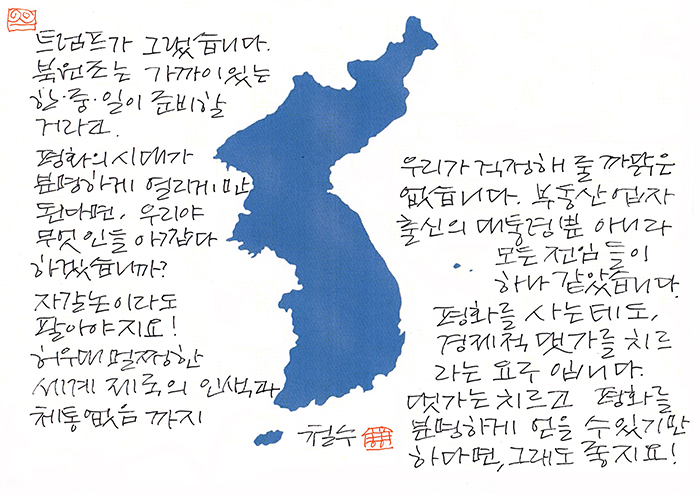 트럼프가 그렀습니다.
북원조는 가까이 있는
한·중·일이 준비할
거라고.
평화의 시대가
분명하게 열리게만
된다면, 우리야
무엇인들 아깝다
하겠습니까?
자갈논이라도
팔아야지요!
허우대 멀쩡한
세계 제국의 인색과
체통 없음 까지
우리가 걱정해 줄 까닭은
없습니다. 부동산 업자
출신의 대통령뿐 아니라
모든 전임들이
하나 같았습니다.
평화를 사는데도,
경제적 댓가를 치르
라는 요구 입니다.
댓가는 치르고 평화를
분명하게 얻을 수 있기만
하다면, 그래도 좋지요!
철수